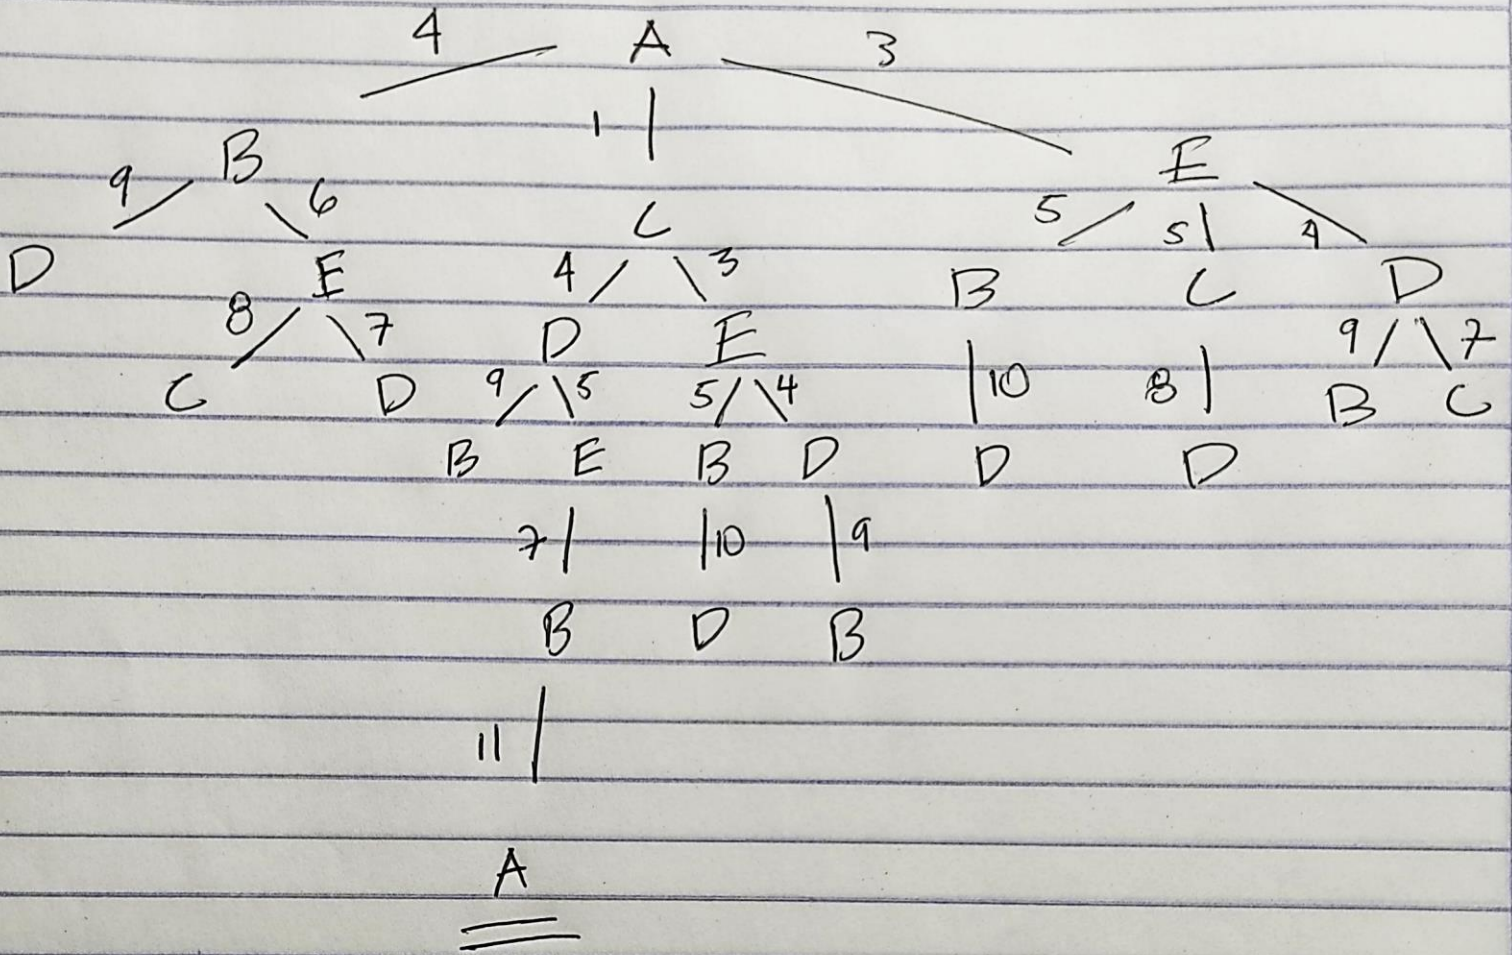 4 A 3
1
B E
9 6 C 5 5 4
D E 4 3 B C D
8 7 D E 10 8 9 7
C D 9 5 5 4 B C
B E B D D D
7 10 9
B D B
11
A